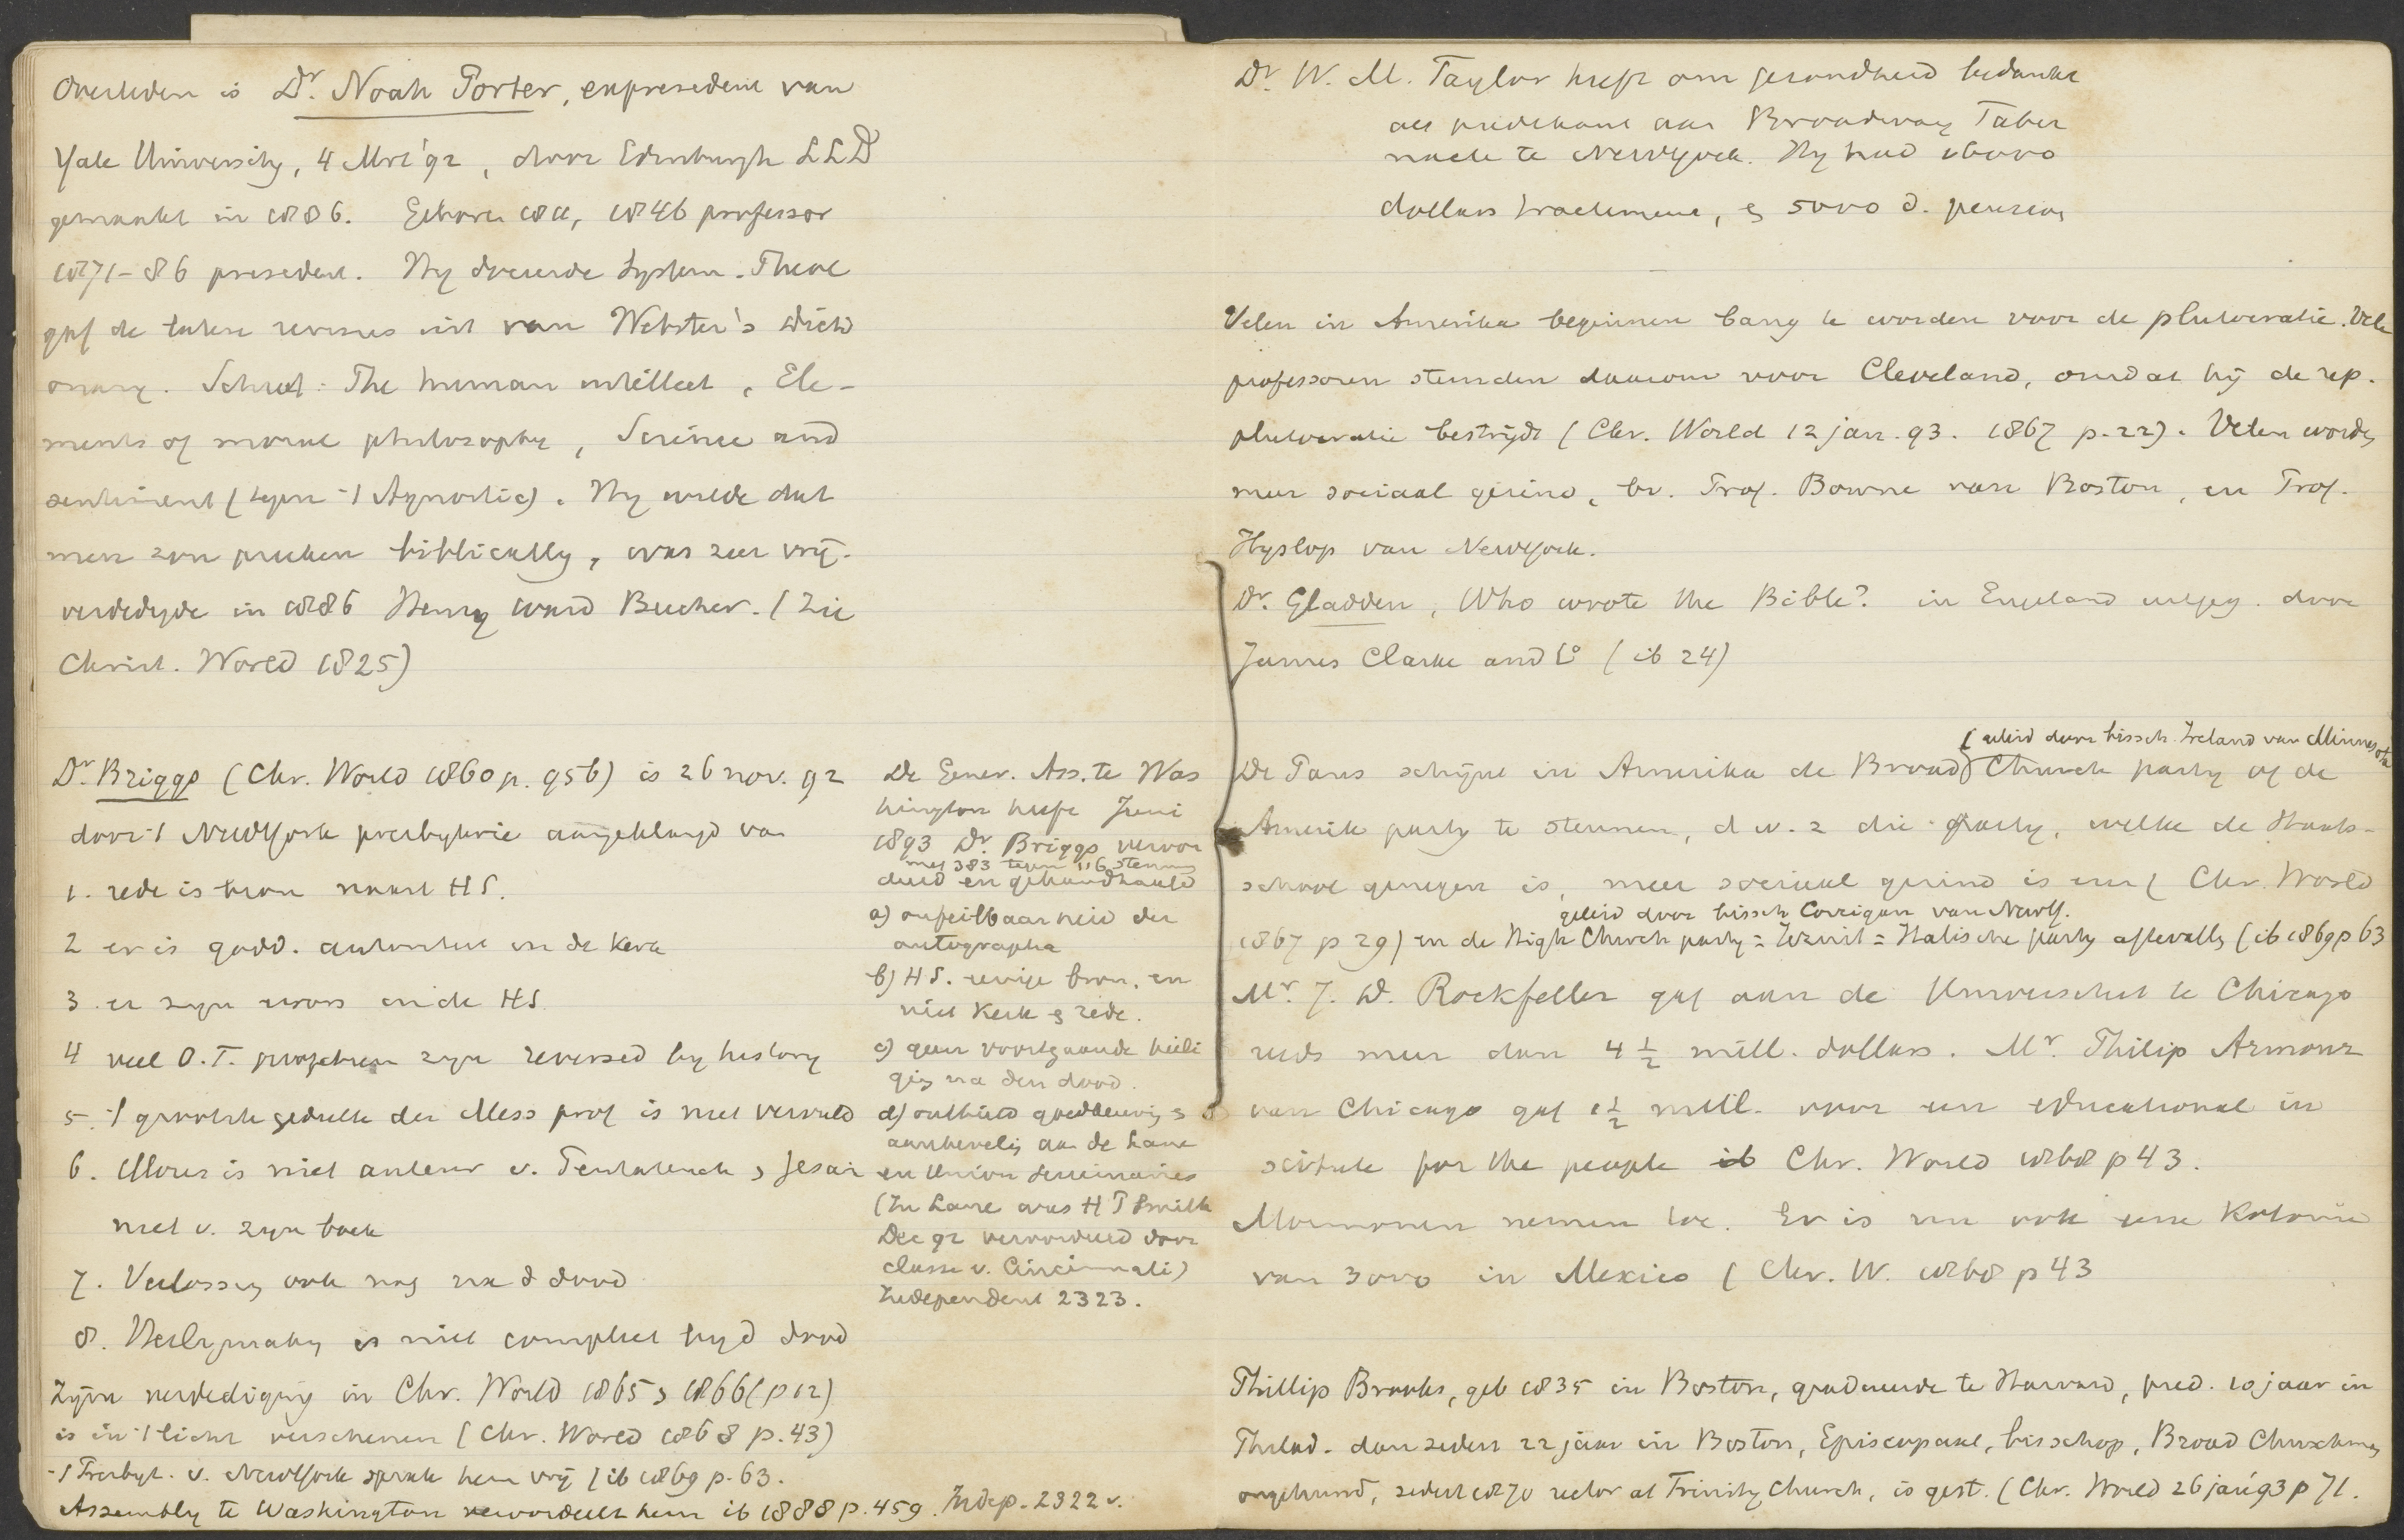 Overleden is Dr. Noah Porter, expresident van
Yale University, 4 Mrt '92, door Edinburgh LLD
gemaakt in 1886. Geboren 1811, 1846 professor
1871-86 president. Hy doceerde System. Theol
gaf de latere revisies uit van Webster's Dicti
onary. Schreef: The human intellect, Ele-
ments of moral philosophy, Science and
sentiment (tegen 't Agnostic). Hy wilde dat
men zou preeken biblically, was zeer vrij.
verdedigde in 1886 Henry Ward Beecher. (Zie
Christ. World 1825)
Dr. Briggs (Chr. World 1860 p. 956) is 26 nov. 92
door 't NewYork presbyterie aangeklaagd van
1. rede is bron naast HS.
2 er is godd. autoriteit in de Kerk
3. er zyn errors in de HS.
4 veel O.T. profetieen zyn reversed by history
5. 't grootste gedeelte der Mess prof is niet vervuld
6. Mozes is niet auteur v. Pentateuch, Jesaia
niet v. zyn boek
7. Verlossing ook nog na d dood
8. Heiligmaking is niet compleet by d dood
Zijne verdediging in Chr. World 1865 & 1866 (p 12)
is in 't licht verschenen (Chr. World 1868 p. 43)
't Presbyt. v. NewYork sprak hem vrij (ib 1869 p. 63.
Assembly te Washington veroordeelt hem ib 1888 p. 459. Indep. 2322 v.
De Gener. Ass. te Was
hington heeft Juni
1893 Dr. Briggs veroor
met 383 tegen 116 stemmen
deeld en gehandhaafd
a) onfeilbaarheid der
autographa
b) HS. eenige bron, en
niet Kerk & rede.
c) geen voortgaande heili
ging na den dood.
d) onthield goedkeuring &
aanbeveling aan de Lane
en Union seminaries
(In Lane was H P Smith
Dec 92 veroordeeld door
classe v. Cincinnati)
Independent 2323.
Dr. W. M. Taylor heeft om gezondheid bedankt
als predikant aan Broadway Taber
nacle te NewYork. Hy had 16000
dollars tractement, & 5000 d. pensioen
Velen in Amerika beginnen bang te worden voor de plutocratie. Vele
professoren stemden daarom voor Cleveland, omdat hij de rep.
plutocratie bestrijdt (Chr. World 12 jan. 93. 1867 p. 22). Velen worden
meer sociaal gezind, bv. Prof. Bowne van Boston, en Prof.
Hyslop van NewYork.
Dr. Gladden, Who wrote the Bible? in Engeland uitgeg. door
James Clarke and Co (ib 24)
(geleid door bissch. Ireland van Minnesota
De Paus schijnt in Amerika de Broad Church party of de
Amerik party te steunen, d.w.z die party, welke de Staats-
school genegen is, meer sociaal gezind is enz (Chr. World
geleid door bissch Corrigan van NewY.
1867 p 29) en de High Church party = Jezuit = Italische party afvallig (ib 1869 p 63
Mr. J. D. Rockfeller gaf aan de Universiteit te Chicago
reeds meer dan 4 1/2 mill. dollars. Mr. Philip Armour
van Chicago gaf 1 1/2 mill. voor een educational in
stitute for the people ib Chr. World 1868 p 43.
Mormonen nemen toe. Er is nu ook eene Kolonie
van 3000 in Mexico (Chr. W. 1868 p 43
Phillip Brooks, geb 1835 in Boston, gradueerde te Harvard, pred. 10 jaar in
Philad. dan sedert 22 jaar in Boston, Episcopaal, bisschop, Broad Churchman
ongehuwd, sedert 1870 rector at Trinity Church, is gest. (Chr. World 26 jan '93 p 71.